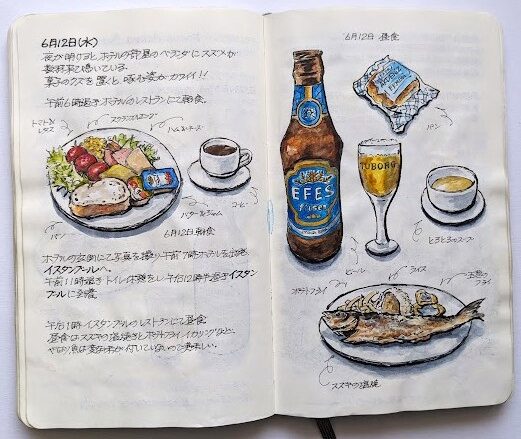 6月12日(水)
夜が明けるとホテルの部屋のベランダにスズメが
数羽来て鳴いている。
菓子のクズを置くと、啄む姿がカワイイ!!
午前6時過ぎホテルのレストランにて朝食。
トマト&レタス
スクランブルエッグ
ハム&チーズ
パン
バター&ジャム
コーヒー
6月12日 朝食
ホテルの玄関にて写真を撮り午前7時ホテルを出発、
イスタンブールへ。
午前11時過ぎトイレ休憩をし午后12時半過ぎイスタン
ブールに到着。
午后1時 イスタンブールのレストランにて昼食
昼食はスズキの塩焼きとポテトフライ、イカリングなど。
やはり魚は変な味が付いていないので美味しい。
6月12日 昼食
パン
EFES
Pilsen
TUBORG
ビール
とろとろのスープ
ポテトフライ
ライス
フライ
スズキの塩焼